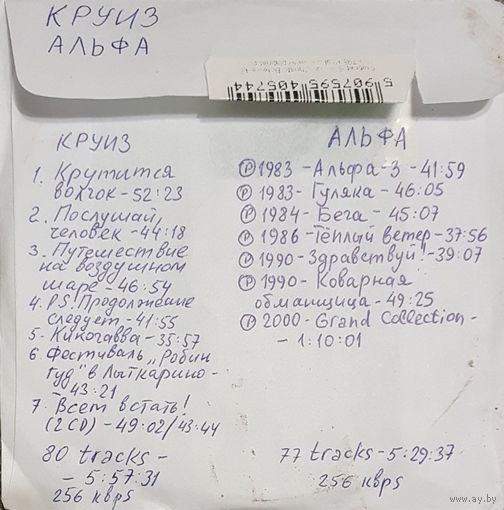 КРУИЗ
АЛЬФА
5907595405744
КРУИЗ
1. Крутится
волчок - 52:23
2. Послушай,
человек - 44:18
3. Путешествие
на воздушном
шаре - 46:54
4. P.S. Продолжение
следует - 41:55
5. Кикогавва - 35:57
6. Фестиваль „Робин
Гуд" в Лыткарино -
- 43:21
7. Всем встать!
(2 CD) - 49:02 / 43:44
80 tracks -
- 5:57:31
256 kbps
АЛЬФА
Ⓟ 1983 - Альфа-3 - 41:59
Ⓟ 1983 - Гуляка - 46:05
Ⓟ 1984 - Бега - 45:07
Ⓟ 1986 - Тёплый ветер - 37:56
Ⓟ 1990 - Здравствуй! - 39:07
Ⓟ 1990 - Коварная
обманщица - 49:25
Ⓟ 2000 - Grand Collection -
- 1:10:01
77 tracks - 5:29:37
256 kbps
www.ay.by